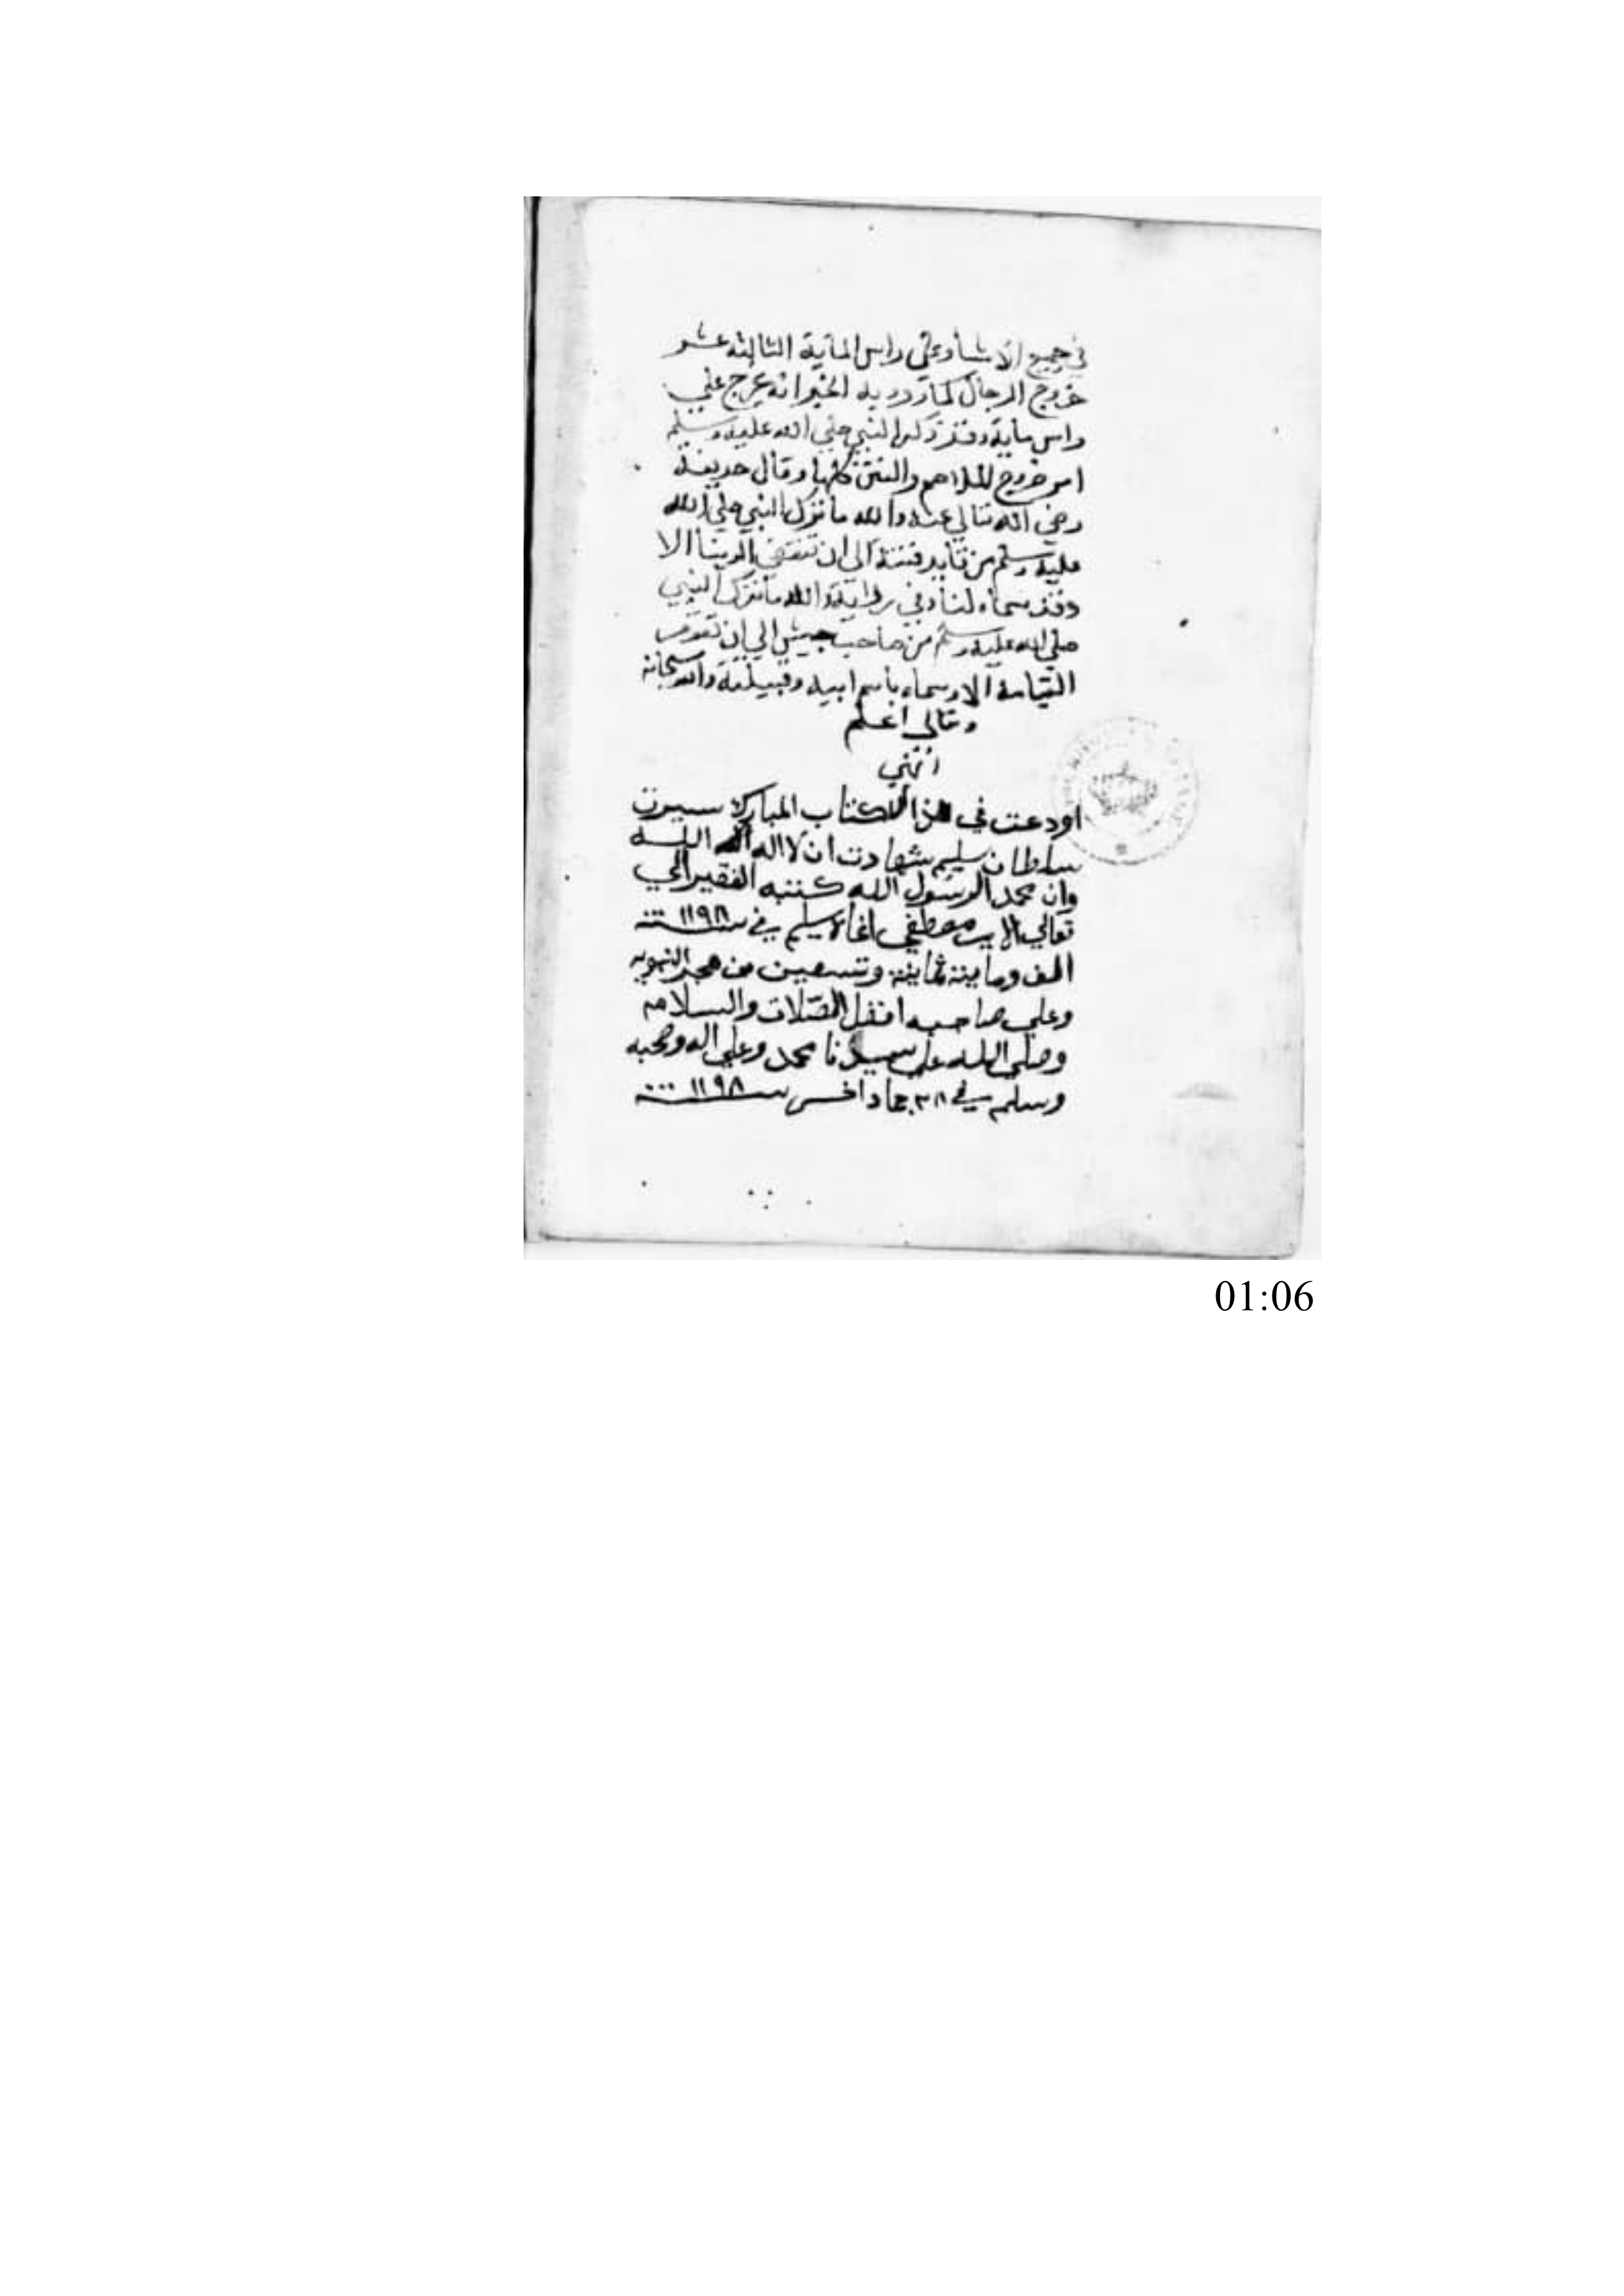 في جميع الاشيا وعلي راس الماية الثالثة عشر
خروج الرجال كما ورد به الخبر انه يخرج علي
راس ماية وقد ذكر النبي صلي الله عليه وسلم
امر خروج الملاحم والفتن كلها وقال حذيفة
رضي الله تعالي عنه والله ما ترك النبي صلي الله
عليه وسلم من قايد فتنة الي ان تنقضي الدينا الا
وقد سماه لنا وفي رواية والله ما ترك النبي
صلي الله عليه وسلم من صاحب جيش الي ان تقوم
القيامة الا وسماه باسم ابيه وقبيلته والله سبحانه
وتعالي اعلم
انتهي
اودعت في هذا الكتاب المبارك سيرت
سلطان سليم شهادت ان لا اله الله
وان محمد الرسول الله كتبه الفقير الي
تعالي مصطفي اغاة سليم في سنة ١١٩٨
الف وماية ثمانية وتسعين من هجر النبويه
وعلي صاحبه افضل الصلات والسلام
وصلي الله علي سيدنا محمد وعلي اله وصحبه
وسلم في جماد اخر سنة ١١٩٨
01:06